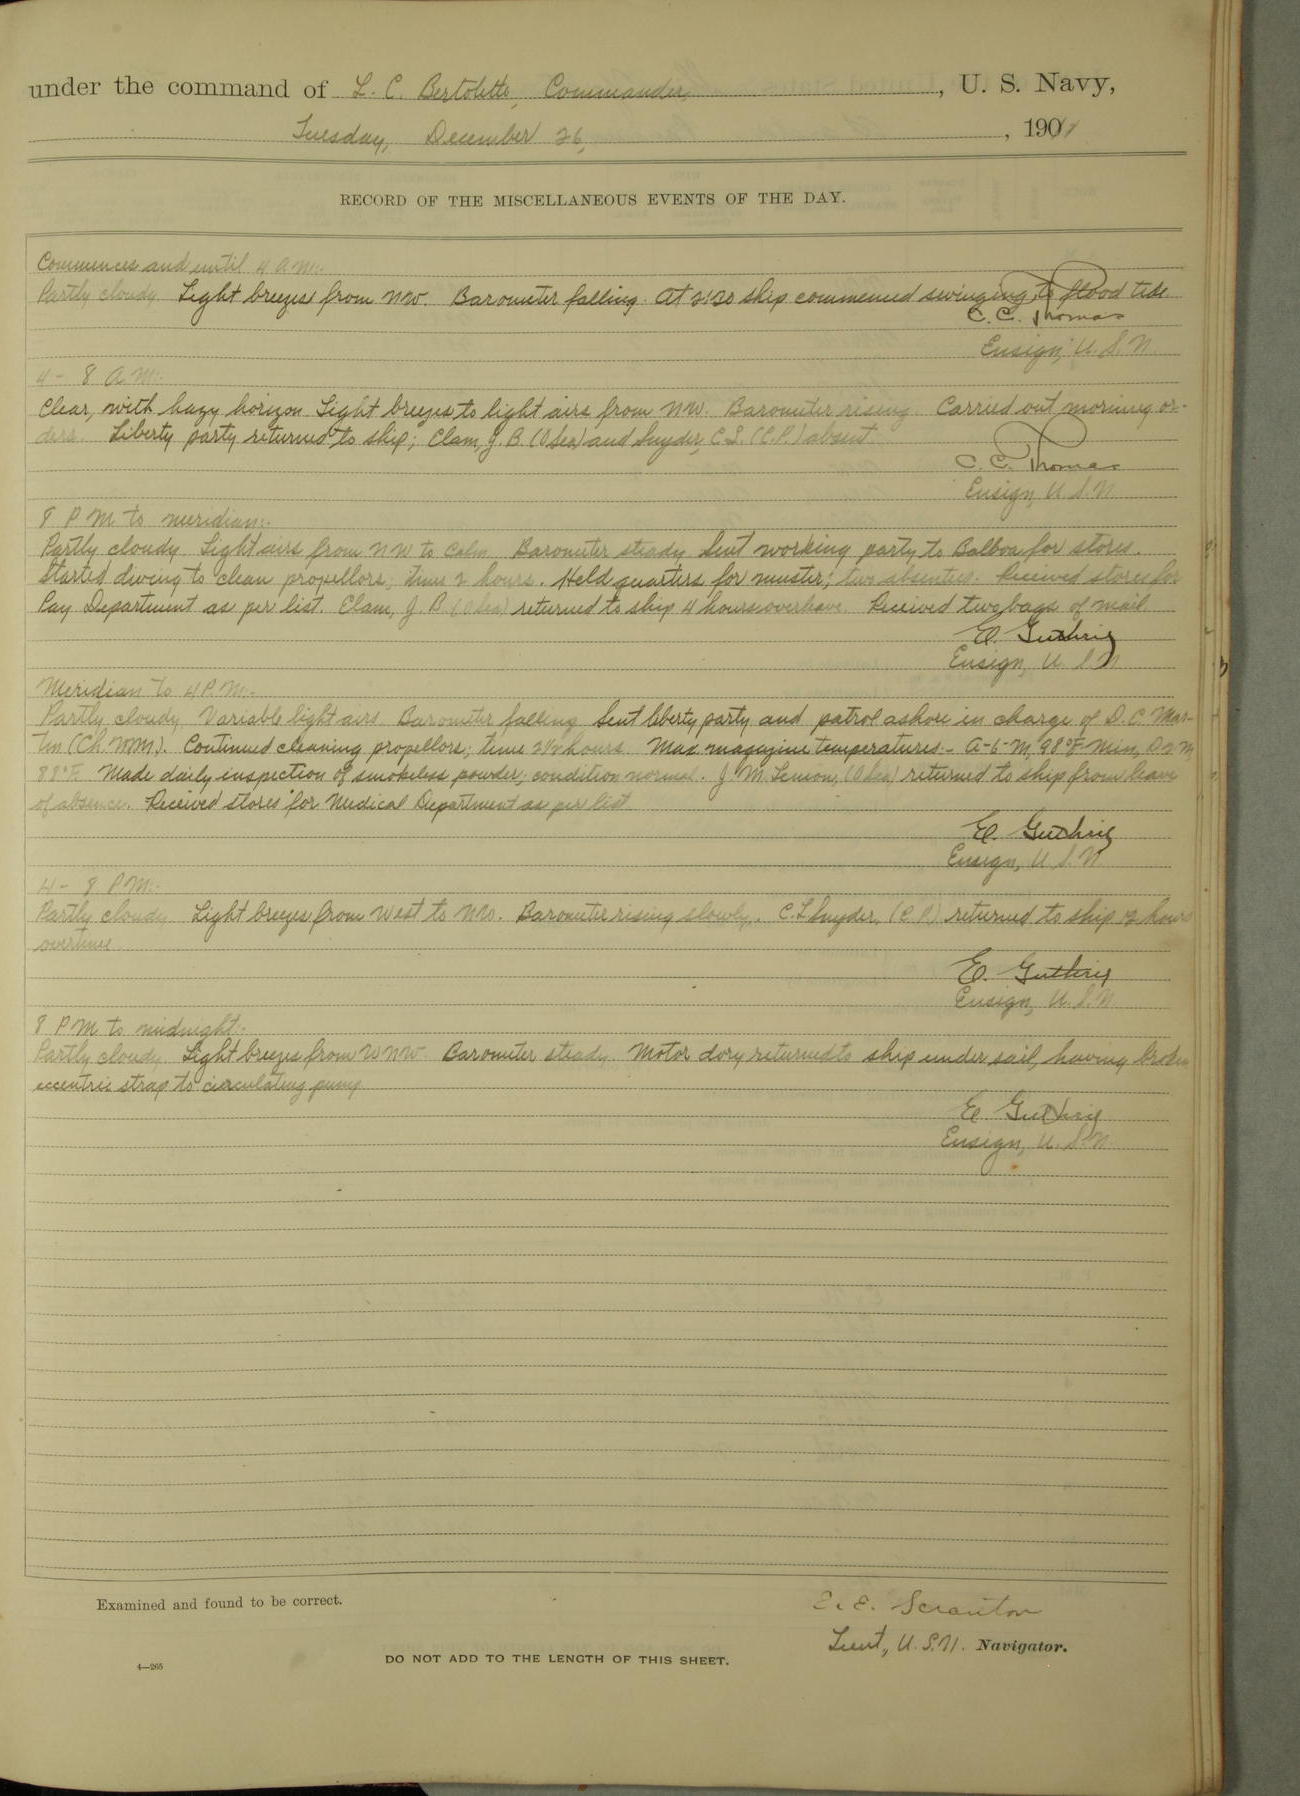 under the command of L. C. Bertolette, Commander, U. S. Navy,
Tuesday, December 26, 1911
RECORD OF THE MISCELLANEOUS EVENTS OF THE DAY.
Commences and until 4 A.M:-
Partly cloudy. Light breezes from NW. Barometer falling. At 2:30 ship commenced swinging to flood tide.
C. C. Thomas
Ensign, U. S. N.
4 - 8 A.M:-
Clear, with hazy horizon. Light breezes to light airs from NW. Barometer rising. Carried out morning or-
ders. Liberty party returned to ship; Clam, J. B. (O Sea) and Snyder, C. L. (C.P.) absent
C. C. Thomas
Ensign, U. S. N.
8 P M to meridian:-
Partly cloudy. Light airs from NW to Calm. Barometer steady. Sent working party to Balboa for stores.
Started diving to clean propellors; time 2 hours. Held quarters for muster; two absentees. Received stores for
Pay Department as per list. Clam, J. B. (O Sea) returned to ship 4 hours overleave. Received two bags of mail
E. Guthrie
Ensign, U. S. N
Meridian to 4 P.M:-
Partly cloudy. Variable light airs. Barometer falling. Sent liberty party and patrol ashore in charge of D. C. Mar-
tin (Ch. MM). Continued cleaning propellors; time 2½ hours. Max magazine temperatures:- A-6-M, 98°F Min, D 2 M,
88°F. Made daily inspection of smokeless powder; condition normal. J. M. Lemon, (O Sea) returned to ship from leave
of absence. Received stores for Medical Department as per list
E. Guthrie
Ensign, U. S. N.
4 - 8 P M:-
Partly cloudy. Light breezes from West to NW. Barometer rising slowly. C. L. Snyder, (C. P.) returned to ship 12 hours
overtime.
E. Guthrie
Ensign, U. S. N
8 P M to midnight:-
Partly cloudy. Light breezes from WNW. Barometer steady. Motor dory returned to ship under sail, having broken
eccentric strap to circulating pump
E. Guthrie
Ensign, U. S. N.
Examined and found to be correct.
E. E. Scranton
Lieut, U. S. N. Navigator.
4—265
DO NOT ADD TO THE LENGTH OF THIS SHEET.